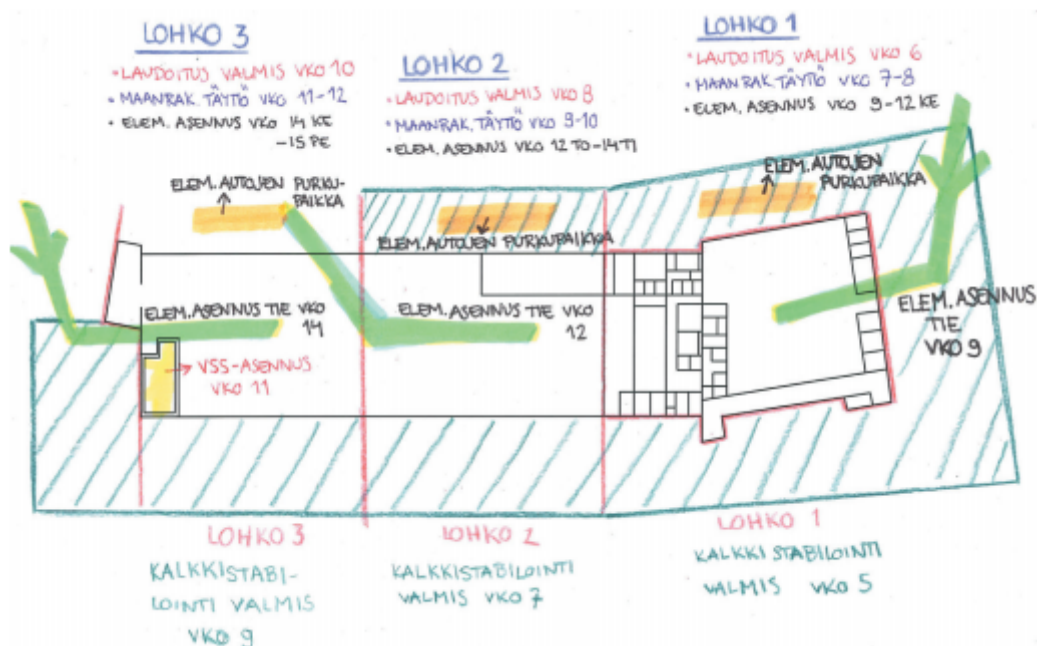 LOHKO 3
• LAUDOITUS VALMIS VKO 10
• MAANRAK. TÄYTÖ VKO 11-12
• ELEM. ASENNUS VKO 14 KE
-15 PE
LOHKO 2
• LAUDOITUS VALMIS VKO 8
• MAANRAK. TÄYTÖ VKO 9-10
• ELEM. ASENNUS VKO 12 TO -14 TI
LOHKO 1
• LAUDOITUS VALMIS VKO 6
• MAANRAK. TÄYTÖ VKO 7-8
• ELEM. ASENNUS VKO 9-12 KE
ELEM. AUTOJEN PURKU-
PAIKKA
ELEM. AUTOJEN PURKUPAIKKA
ELEM. AUTOJEN
PURKUPAIKKA
ELEM. ASENNUS TIE VKO
14
ELEM. ASENNUS TIE VKO
12
ELEM. ASENNUS
TIE
VKO 9
VSS-ASENNUS
VKO 11
LOHKO 3
KALKKISTABI-
LOINTI VALMIS
VKO 9
LOHKO 2
KALKKISTABILOINTI
VALMIS VKO 7
LOHKO 1
KALKKISTABILOINTI
VALMIS VKO 5